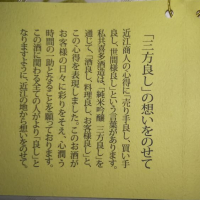 「三方良し」の想いをのせて
近江商人の心得に「売り手良し、買い手
良し、世間様良し」という言葉があります。
私共喜多酒造は、「純米吟醸 三方良し」を
通じて、「酒良し、料理良し、お客様良し」と、
この心得を表現しました。このお酒が
お客様の日々に彩りをそえ、心潤う
時間の一助となることを願っております。
この酒に関わる全ての人がより「良し」と
なりますように、近江の地から想いをのせて。